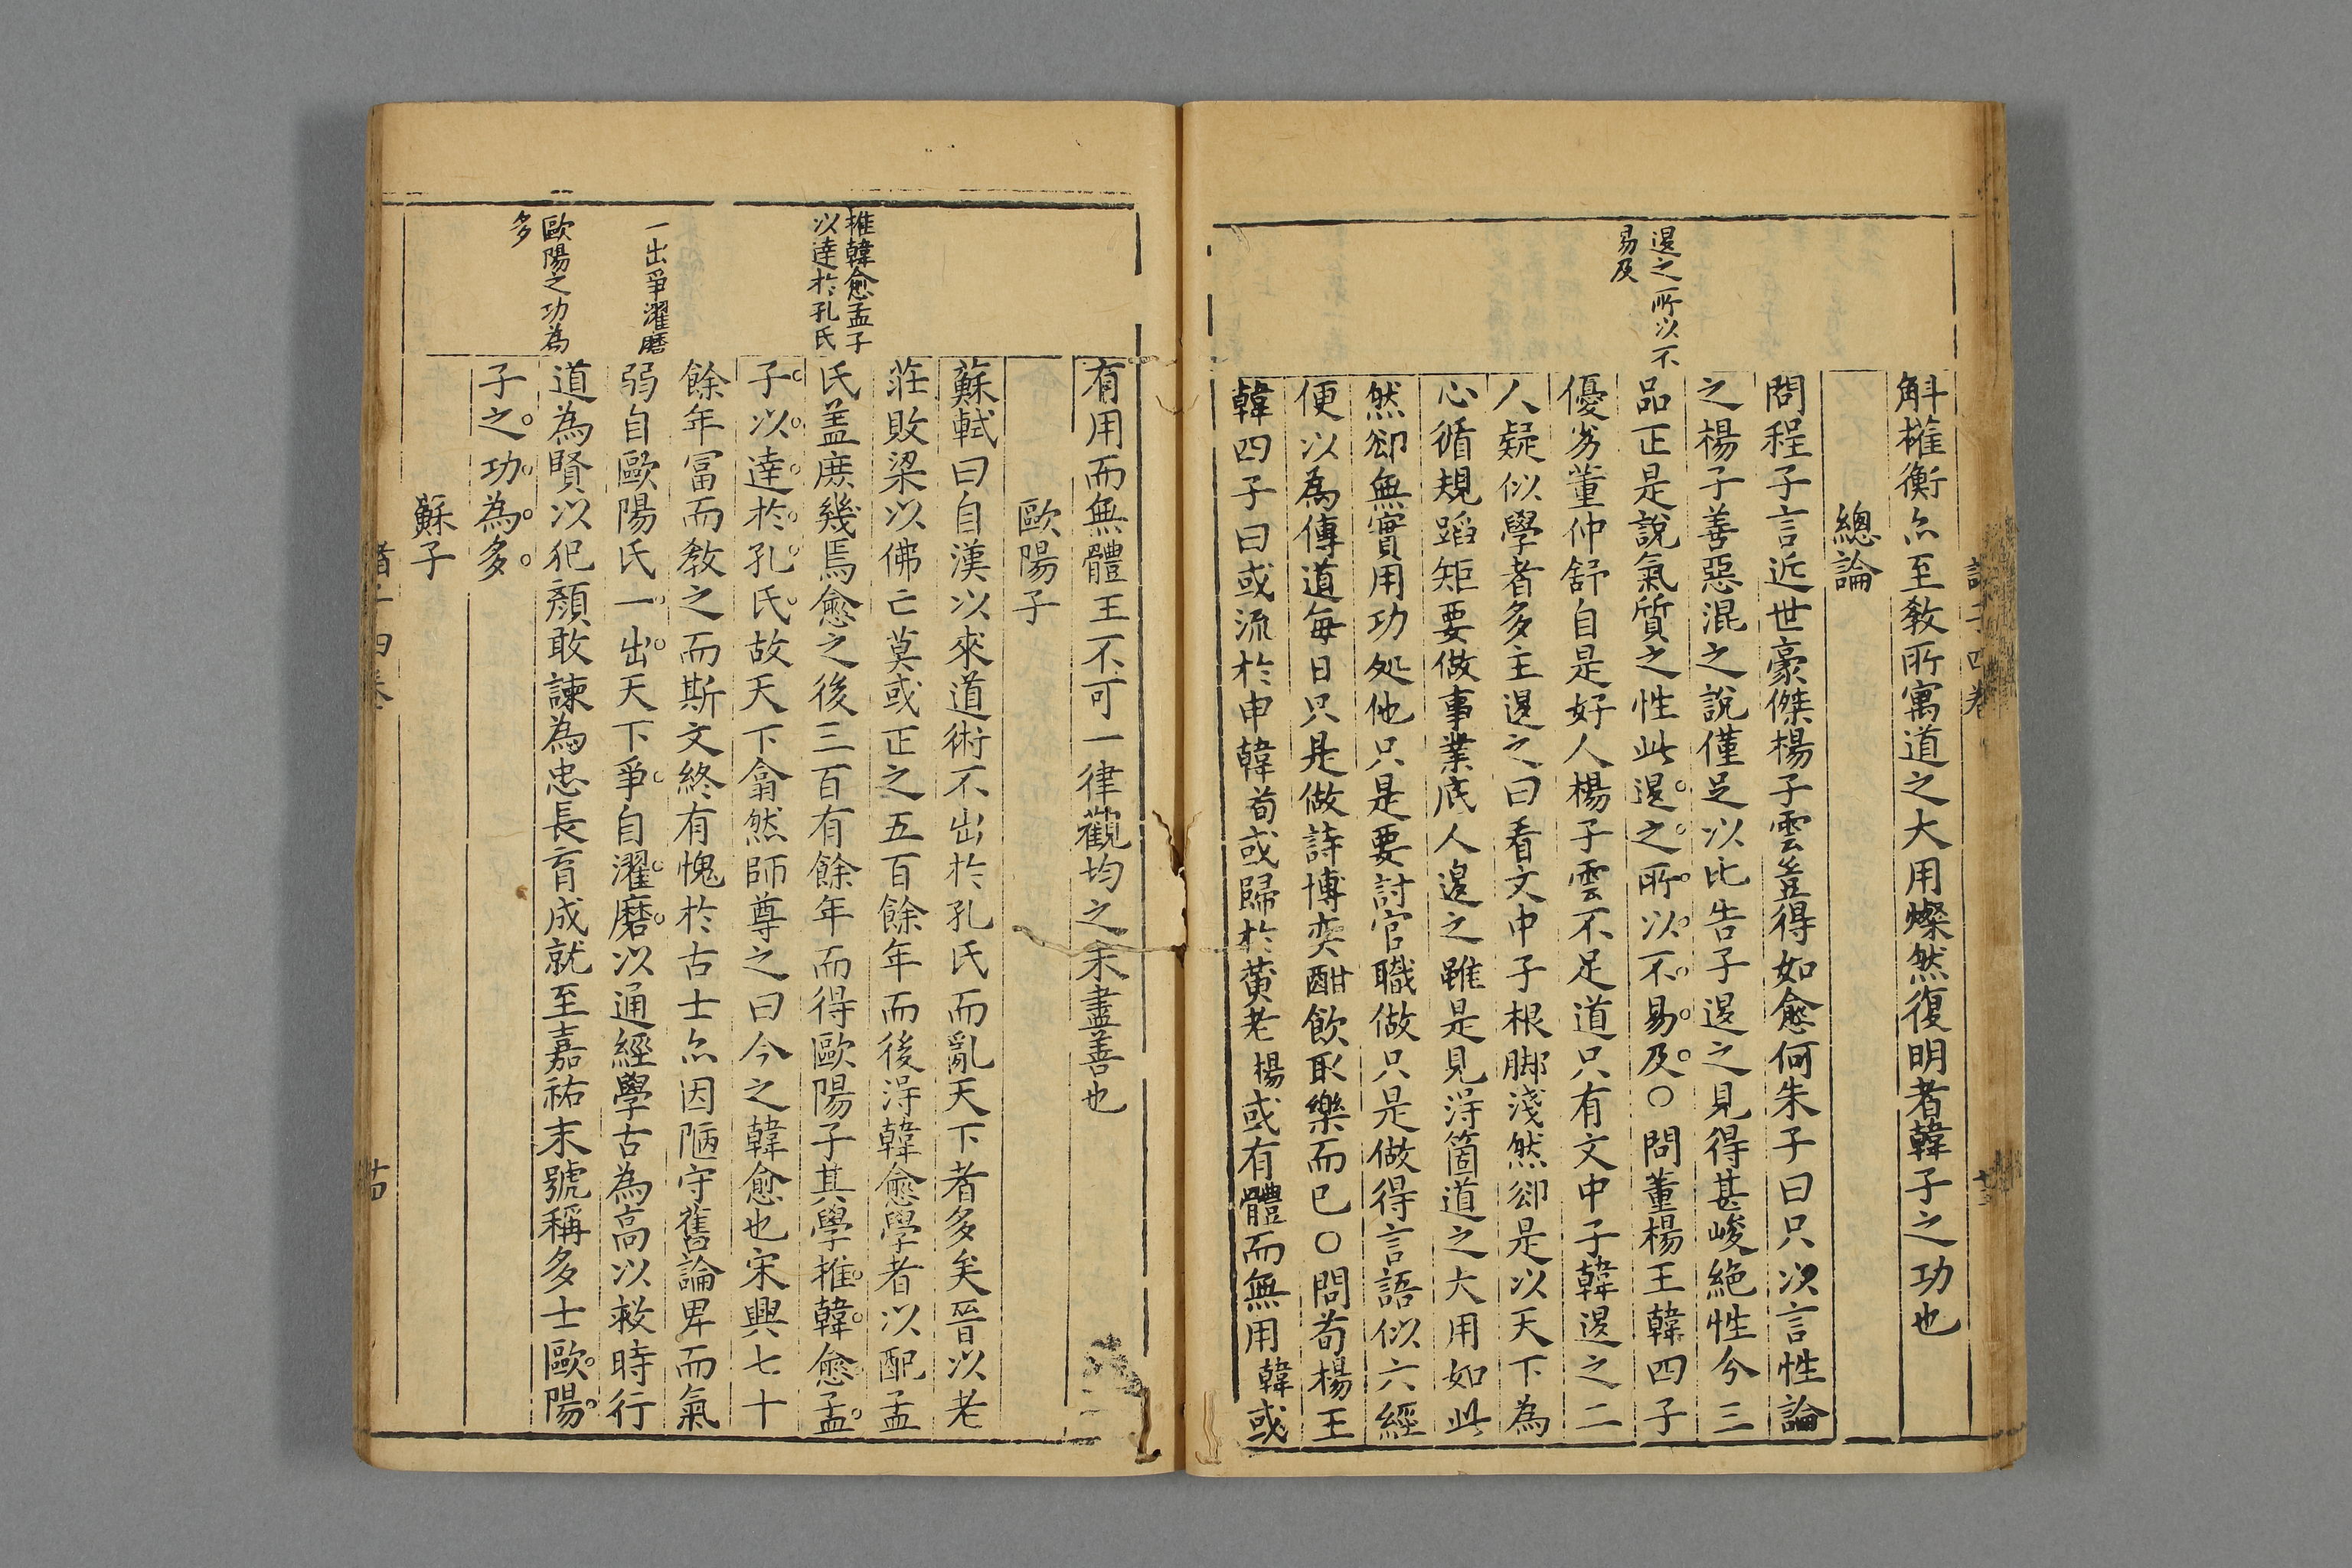 退之所以不
易及
斛權衡亦至教所寓道之大用燦然復明者韓子之功也
總論
問程子言近世豪傑楊子雲豈得如愈何朱子曰只以言性論
之楊子善惡混之說僅足以比告子退之見得甚峻絶性分三
品正是說氣質之性此退之所以不易及○問董楊王韓四子
優劣董仲舒自是好人楊子雲不足道只有文中子韓退之二
人疑似學者多主退之曰看文中子根脚淺然卻是以天下為
心循規蹈矩要做事業底人退之雖是見淂箇道之大用如此
然卻無實用功処他只是要討官職做只是做得言語似六經
便以為傳道每日只是做詩博奕酣飲取樂而已○問荀楊王
韓四子曰或流於申韓荀或歸於黄老楊或有體而無用韓或
推韓愈孟子
以達於孔氏
一出爭濯磨
歐陽之功為
多
有用而無體王不可一律觀均之未盡善也
歐陽子
蘇軾曰自漢以來道術不出於孔氏而亂天下者多矣晉以老
莊敗梁以佛亡莫或正之五百餘年而後淂韓愈學者以配孟
氏盖庶幾焉愈之後三百有餘年而得歐陽子其學推韓愈孟
子以達於孔氏故天下翕然師尊之曰今之韓愈也宋興七十
餘年冨而教之而斯文終有愧於古士亦因陋守舊論卑而氣
弱自歐陽氏一出天下爭自濯磨以通經學古為高以救時行
道為賢以犯顏敢諫為忠長育成就至嘉祐末號稱多士歐陽
子之功為多
蘇子